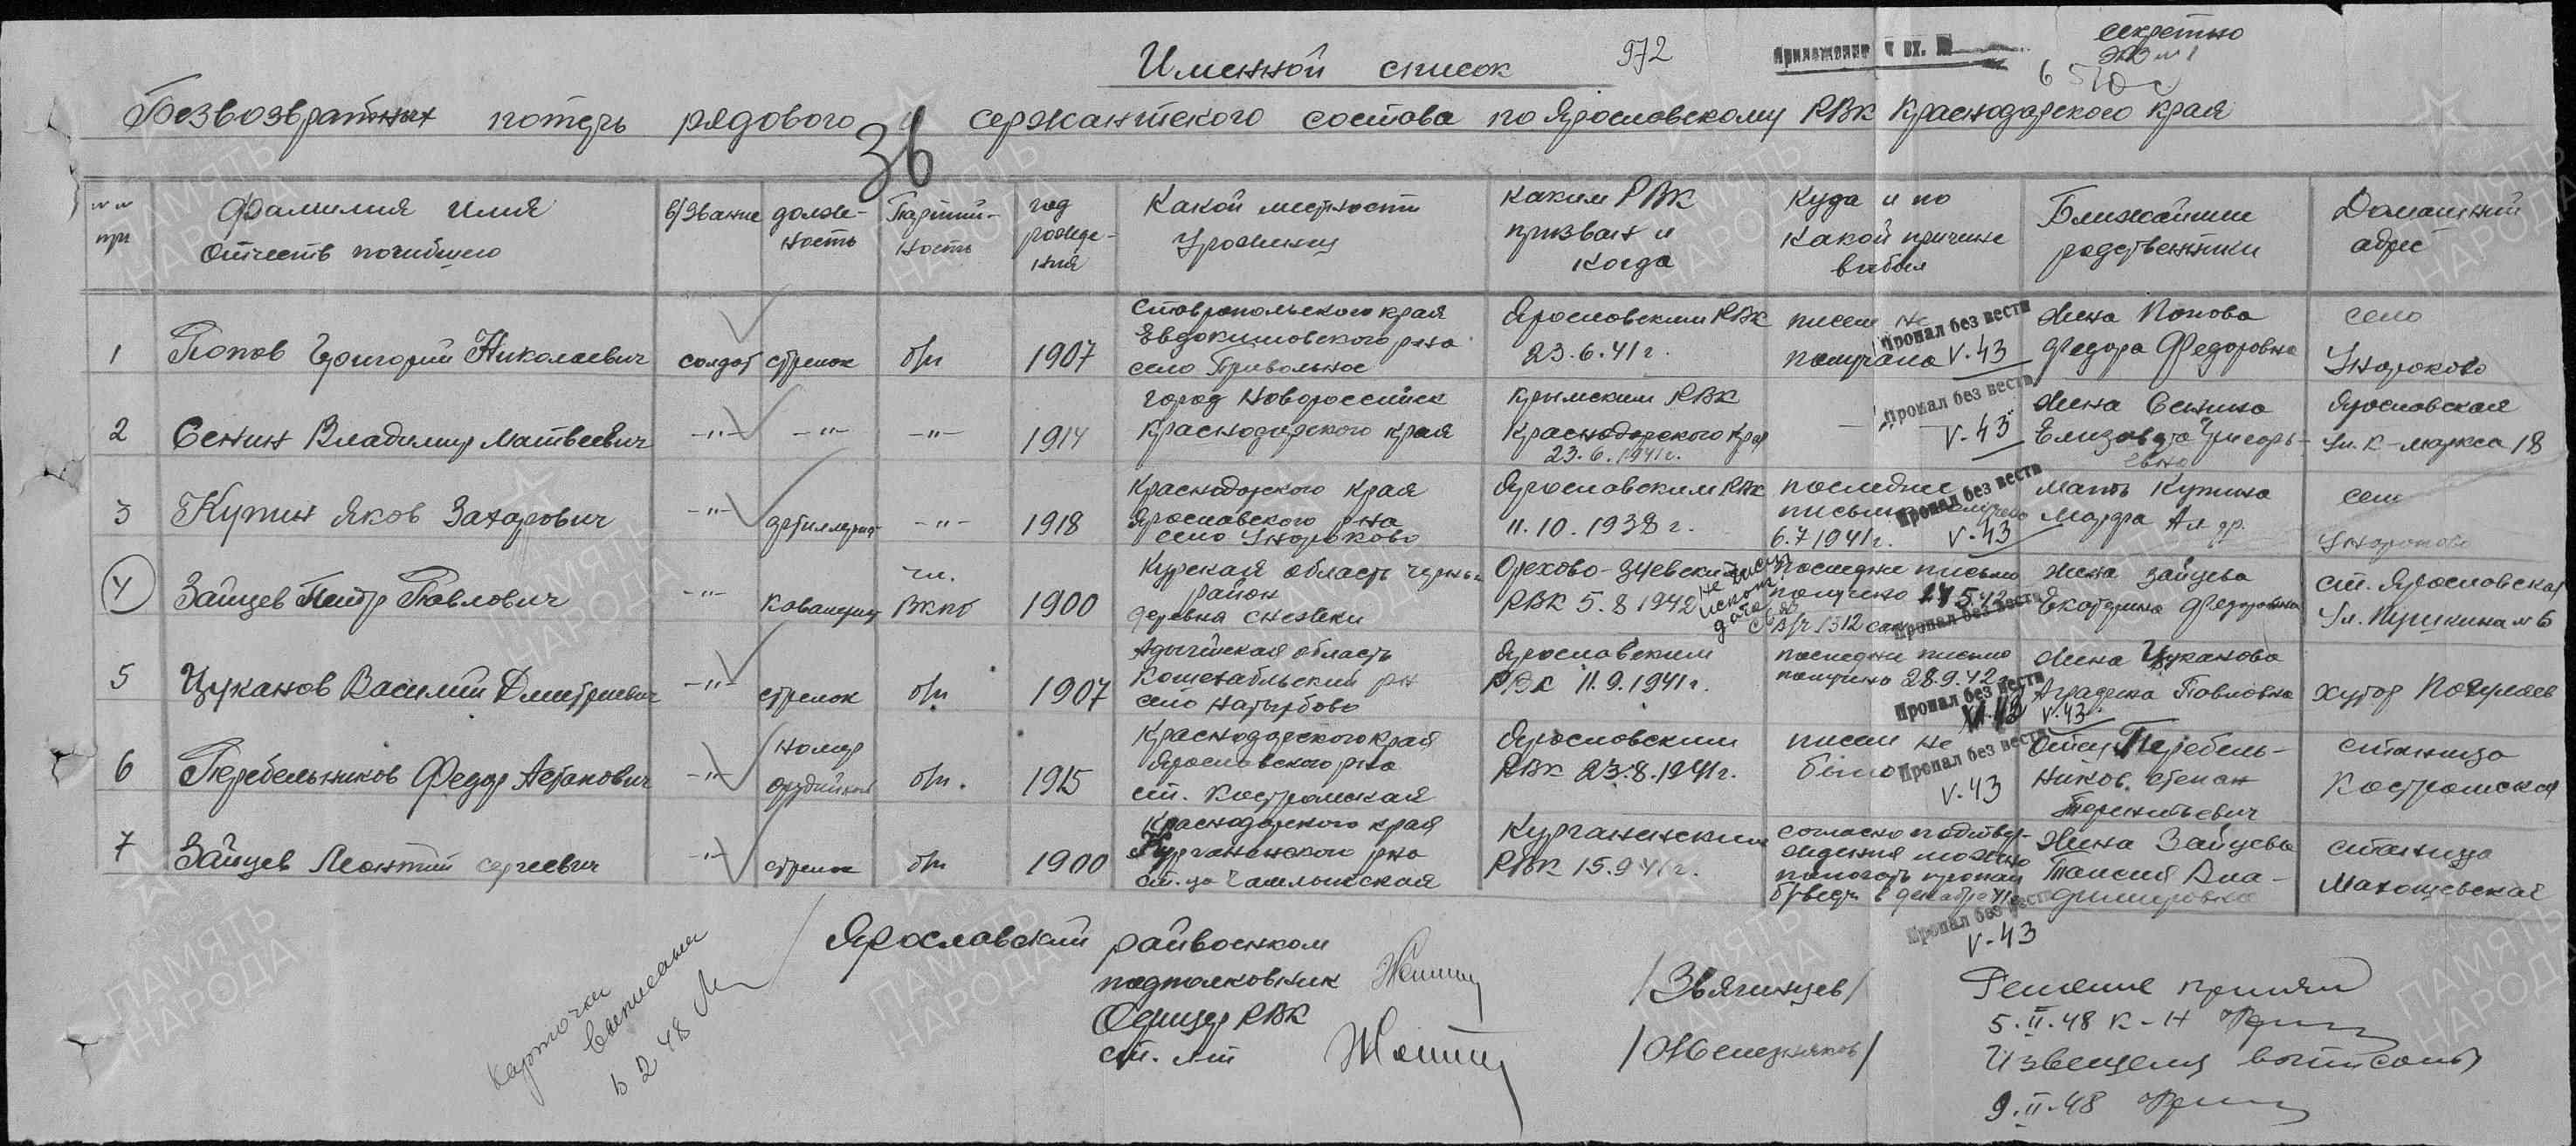 секретно
экз №1
Именной список
972
Приложение к вх. №
Безвозвратных потерь рядового и сержантского состава по Ярославскому РВК Краснодарского края
36
№ №
п/п
Фамилия имя
отчеств погибшего
в/звание
долж-
ность
Партий-
ность
год
рожде-
ния
Какой местности
уроженец
каким РВК
призван и
когда
Куда и по
какой причине
выбыл
Ближайшие
родственники
Домашний
адрес
1
Попов Григорий Николаевич
солдат
стрелок
б/п
1907
Ставропольского края
село Привольное
Ярославским РВК
23.6.41г.
писем не
получала
Пропал без вести
V-43
Жена Попова
Федора Федоровна
село
Унароково
2
Сенин Владимир Матвеевич
-"-
-"-
-"-
1914
город Новороссийск
Краснодарского края
Крымским РВК
Краснодарского края
23.6.1941г.
Пропал без вести
V-43
Жена Сенина
Елизавета Григорь-
евна
Ярославская
Ул. К-маркса 18
3
Яков Захарович
-"-
артиллерист
-"-
1918
Краснодарского края
Ярославского р-на
село Унароково
Ярославским РВК
11.10.1938г.
последнее
письмо
6.7 1941г.
Пропал без вести
V-43
Мать
село
Унароково
4
Зайцев Петр Павлович
-"-
кавалерист
чл.
ВКПб
1900
Курская область
район
деревня Снежки
Орехово-Зуевский
РВК 5.8 1942
Последнее письмо
получено
Пропал без вести
Жена Зайцева
Екатерина Федоровна
ст. Ярославская
Ул. Пушкина №6
5
Цуканов Василий Дмитриевич
-"-
стрелок
б/п
1907
Адыгейская область
Кошехабльский р-н
село Натырбово
Ярославским
РВК 11.9.1941г.
последнее письмо
получено 28.9.42
Пропал без вести
V-43
Жена Цуканова
Павловна
хутор
6
Перебельников Федор
-"-
номер
орудийный
б/п.
1915
Краснодарского края
Ярославского р-на
ст. Костромская
Ярославским
РВК 23.8.1941г.
писем не
было
Пропал без вести
V-43
Отец Перебель-
ников Степан
Терентьевич
станица
Костромская
7
Зайцев Леонтий Сергеевич
-"-
стрелок
б/п
1900
Краснодарского края
Курганенского р-на
ст-ца Чамлыкская
Курганинским
РВК 15.9 41г.
согласно подтвер-
ждения можно
пологать пропал
б/вести в декабре 41г
Пропал без вести
V-43
Жена Зайцева
Таисия Вла-
димировна
станица
Махошевская
Ярославский райвоенком
подполковник
/Звягинцев/
Офицер РВК
ст. л-т
/Железняков/
Карточки
выписаны
Решение принял
5.II.48 к-н
Извещения выписаны
9.II.48
ПАМЯТЬ
НАРОДА